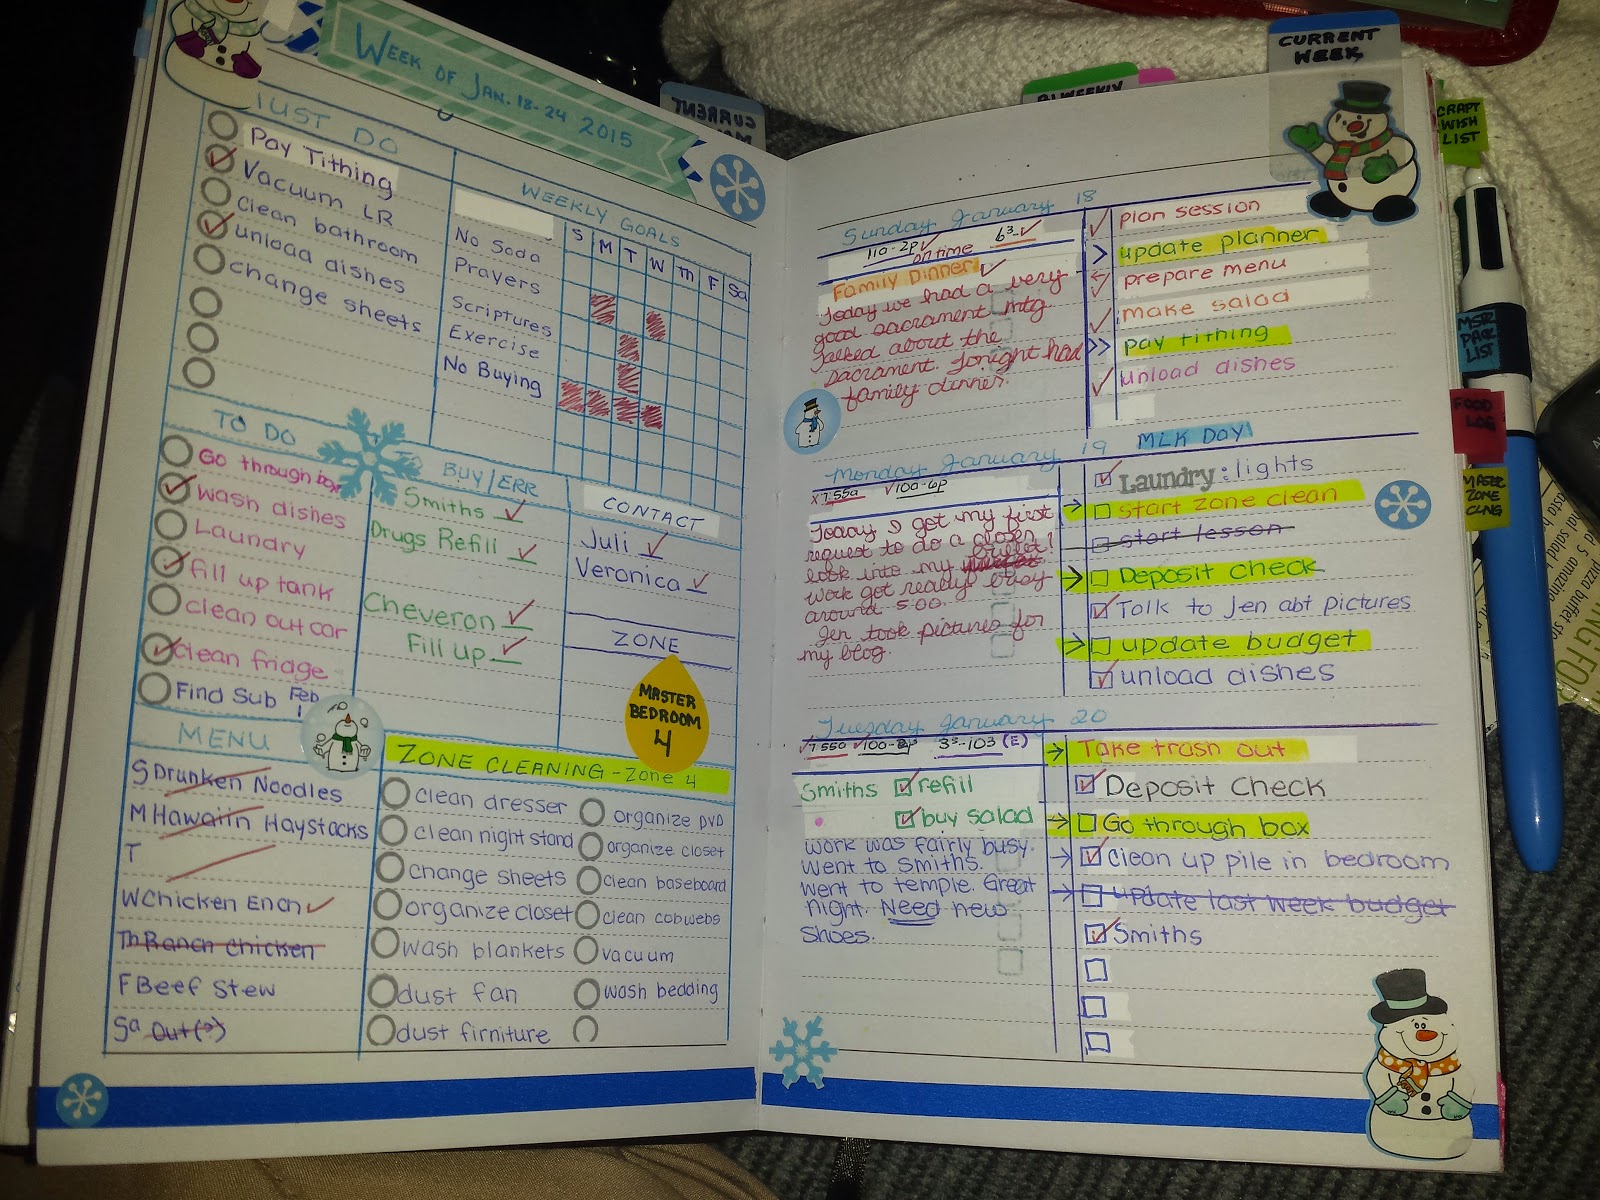 WEEK OF JAN. 18-24 2015
JUST DO
Pay Tithing
Vacuum LR
clean bathroom
unload dishes
change sheets
WEEKLY GOALS
S M T W Th F Sa
No Soda
Prayers
Scriptures
Exercise
No Buying
TO DO
Go through box
Wash dishes
Laundry
fill up tank
clean out car
clean fridge
Find Sub Feb 1
TO BUY/ERR
Smiths
Drugs Refill
Cheveron
Fill up
CONTACT
Juli
Veronica
ZONE
MASTER
BEDROOM
4
MENU
S Drunken Noodles
M Hawaiin Haystacks
T
W Chicken Ench
Th Ranch Chicken
F Beef Stew
Sa Out(?)
ZONE CLEANING - Zone 4
clean dresser
clean night stand
change sheets
organize closet
wash blankets
dust fan
dust firniture
organize DVD
organize closet
clean baseboard
clean cobwebs
vacuum
wash bedding
CURRENT
WEEK
BI WEEKLY
CURRENT
CRAFT
WISH
LIST
LIST
FOOD
LOG
MASTER
ZONE
CLNG
Sunday January 18
110-2p on time 6³-
Family Dinner
Today we had a very
good sacrament mtg
talked about the
sacrament. Tonight had
family dinner.
plan session
update planner
prepare menu
make salad
pay tithing
unload dishes
Monday January 19 MLK DAY
7:55a 100-6p
Today I got my first
request to do a closer
look into my bullet!
work got really busy
around 5:00.
Jen took pictures for
my blog.
Laundry: lights
start zone clean
start lesson
Deposit check
Talk to Jen abt pictures
update budget
unload dishes
Tuesday January 20
7:550 100- 3³-103 (E)
Smiths refill
buy salad
work was fairly busy.
Went to Smiths.
Went to temple. Great
night. Need new
shoes.
Take trash out
Deposit Check
Go through box
Clean up pile in bedroom
update last week budget
Smiths